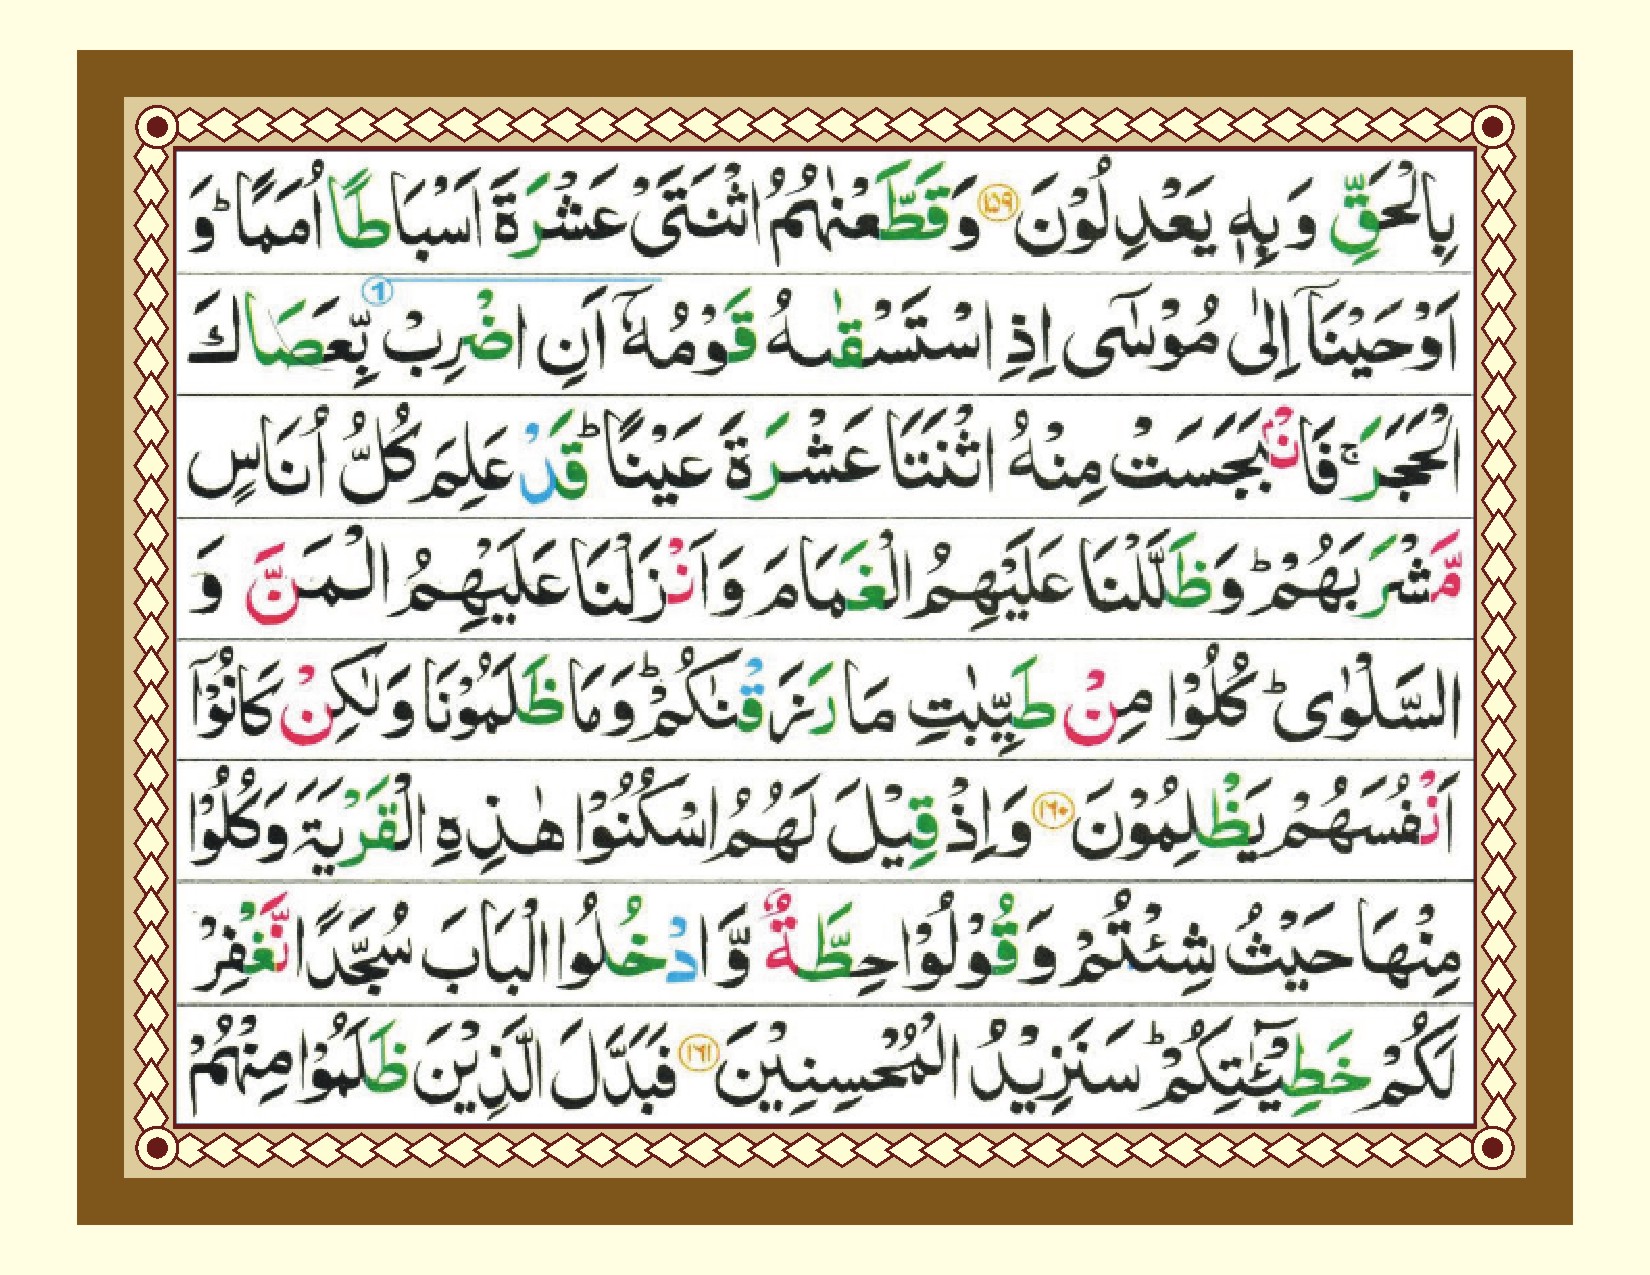 بِالْحَقِّ وَبِهٖ يَعْدِلُوْنَ ۝۱۵۹ وَقَطَّعْنٰهُمُ اثْنَتَىْ عَشْرَةَ اَسْبَاطًا اُمَمًاؕ وَ
اَوْحَيْنَاۤ اِلٰى مُوْسٰٓى اِذِ اسْتَسْقٰىهُ قَوْمُهٗۤ اَنِ اضْرِبْ بِّعَصَاكَ
1
الْحَجَرَۚ فَانْۢبَجَسَتْ مِنْهُ اثْنَتَا عَشْرَةَ عَيْنًاؕ قَدْ عَلِمَ كُلُّ اُنَاسٍ
مَّشْرَبَهُمْؕ وَظَلَّلْنَا عَلَيْهِمُ الْغَمَامَ وَاَنْزَلْنَا عَلَيْهِمُ الْمَنَّ وَ
السَّلْوٰىؕ كُلُوْا مِنْ طَيِّبٰتِ مَا رَزَقْنٰكُمْؕ وَمَا ظَلَمُوْنَا وَلٰكِنْ كَانُوْۤا
اَنْفُسَهُمْ يَظْلِمُوْنَ ۝۱۶۰ وَاِذْ قِيْلَ لَهُمُ اسْكُنُوْا هٰذِهِ الْقَرْيَةَ وَكُلُوْا
مِنْهَا حَيْثُ شِئْتُمْ وَقُوْلُوْا حِطَّةٌ وَّادْخُلُوا الْبَابَ سُجَّدًا نَّغْفِرْ
لَكُمْ خَطِيْٓـٰٔتِكُمْؕ سَنَزِيْدُ الْمُحْسِنِيْنَ ۝۱۶۱ فَبَدَّلَ الَّذِيْنَ ظَلَمُوْا مِنْهُمْ